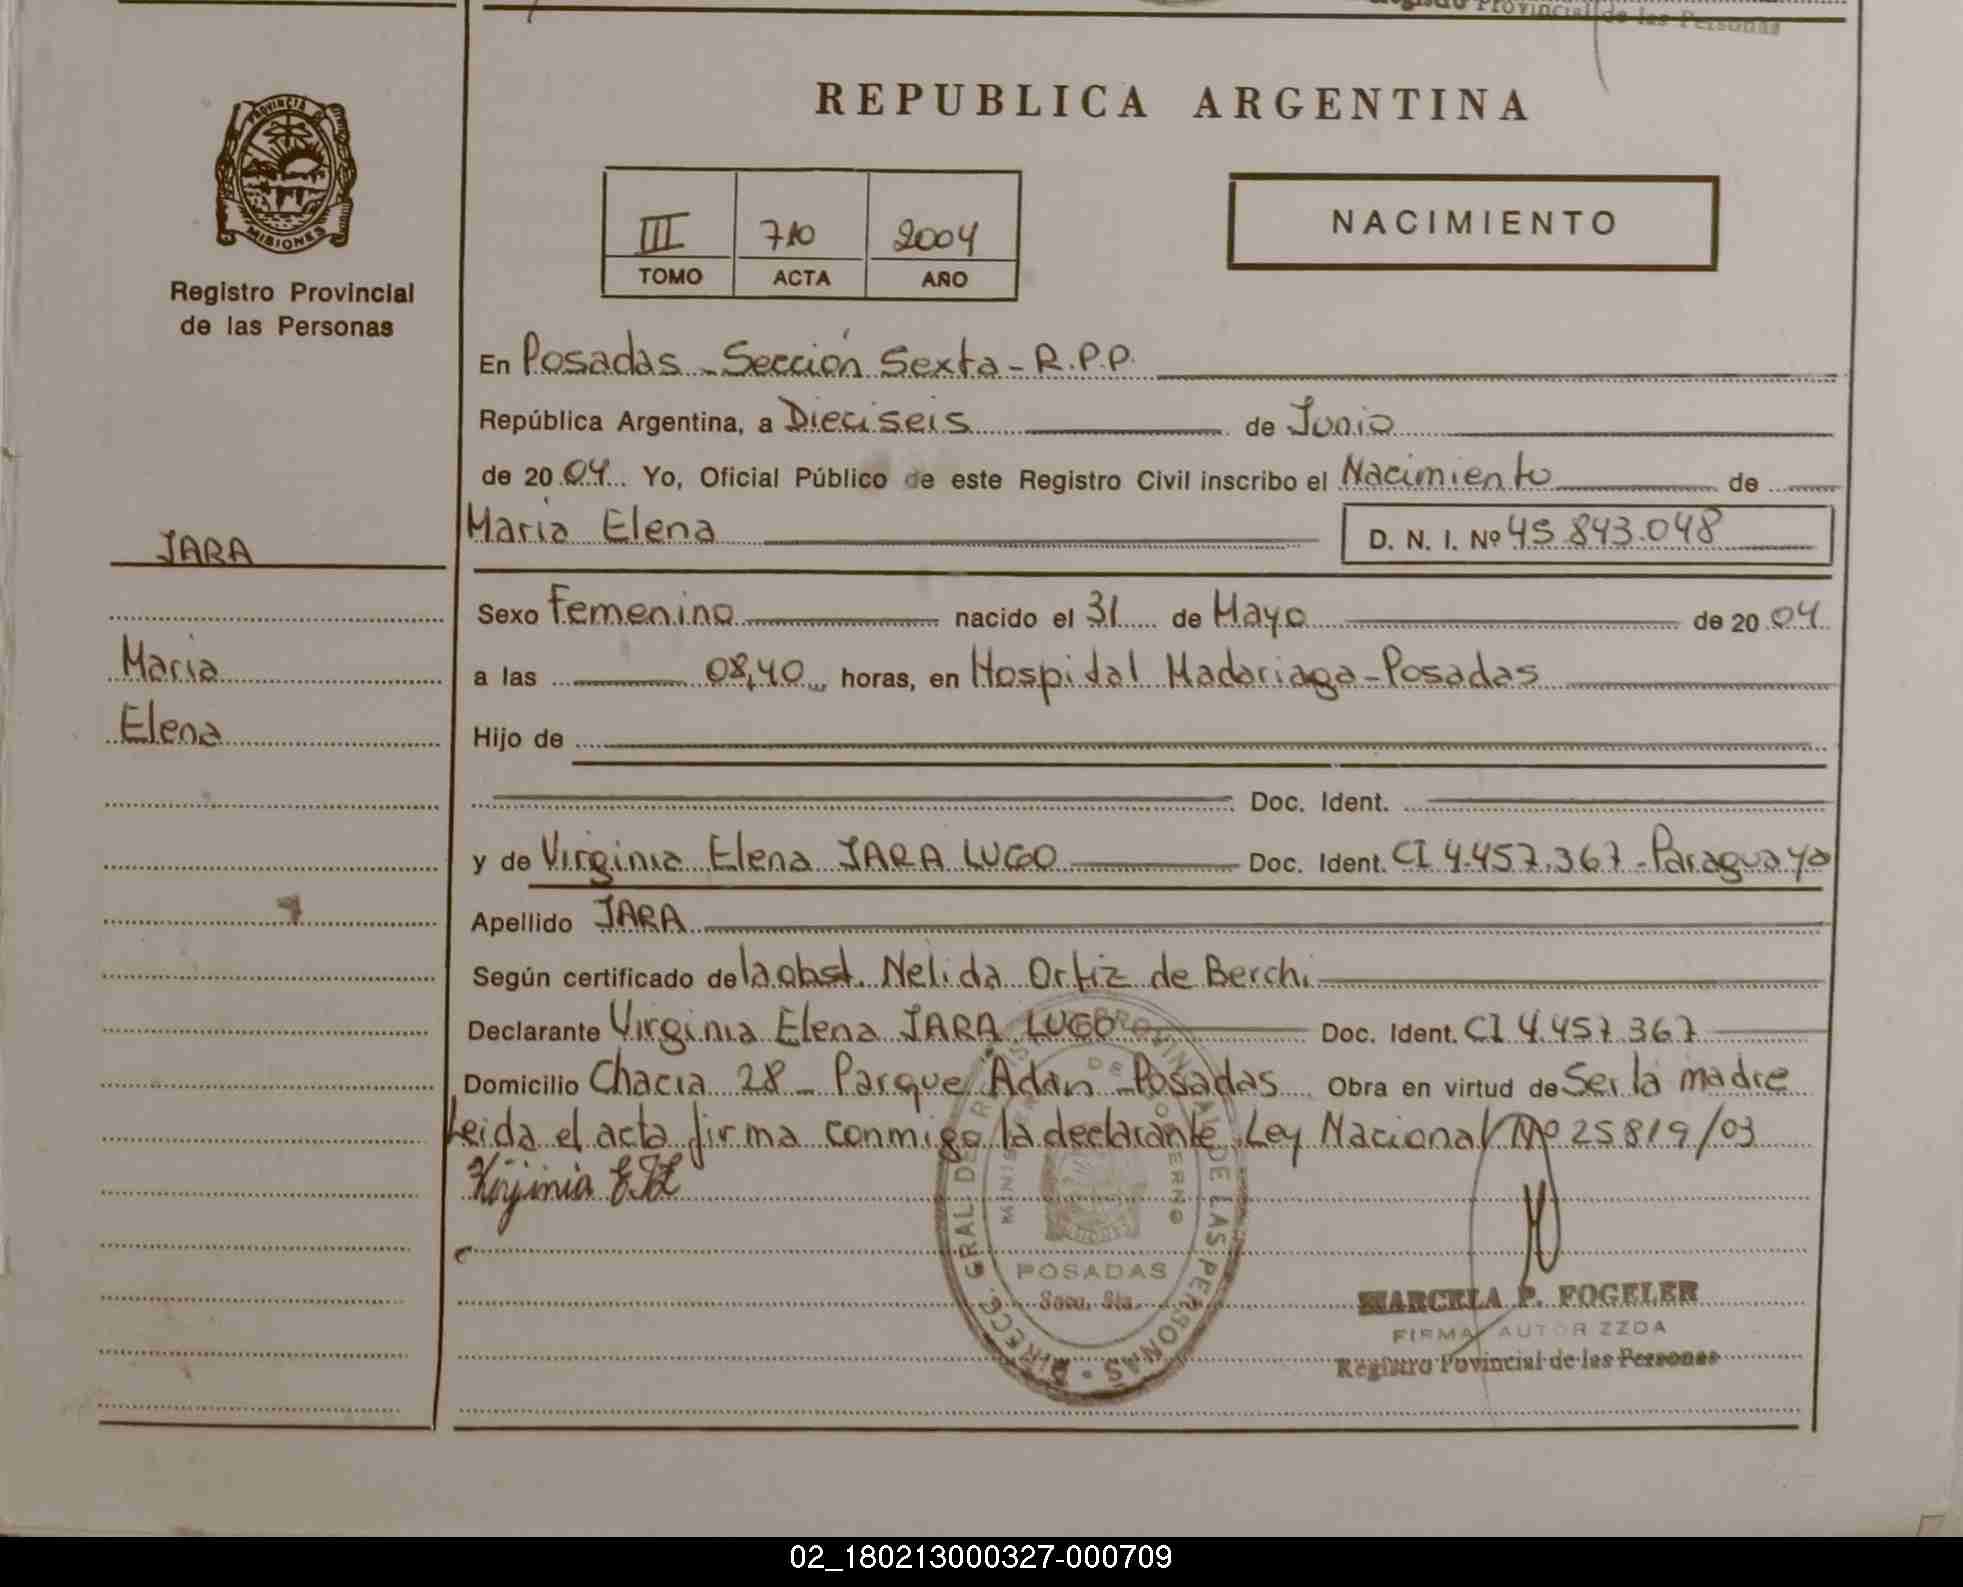 Registro Provincial de las Personas
PROVINCIA
MISIONES
Registro Provincial
de las Personas
JARA
Maria
Elena
REPUBLICA ARGENTINA
III 710 2004
TOMO ACTA AÑO
NACIMIENTO
En Posadas - Sección Sexta - R.P.P.
República Argentina, a Dieciseis de Junio
de 20 04 Yo, Oficial Público de este Registro Civil inscribo el Nacimiento de
Maria Elena D. N. I. Nº 45.843.048
Sexo Femenino nacido el 31 de Mayo de 20 04
a las 08,40 horas, en Hospital Madariaga - Posadas
Hijo de
Doc. Ident.
y de Virginia Elena JARA LUGO Doc. Ident. CI 4.457.367 - Paraguaya
Apellido JARA
Según certificado de la obst. Nelida Ortiz de Berchi
Declarante Virginia Elena JARA LUGO Doc. Ident. CI 4.457.367
Domicilio Chacra 28 - Parque Adan - Posadas Obra en virtud de Ser la madre
Leida el acta firma conmigo la declarante. Ley Nacional Nº 25819/03
Virjinia
DIRECC. GRAL. DE REGISTRO PROVINCIAL DE LAS PERSONAS
MINISTERIO DE GOBIERNO
POSADAS
Secc. 6ta.
MARCELA P. FOGELER
FIRMA AUTORIZZDA
Registro Povincial de las Personas
02_180213000327-000709